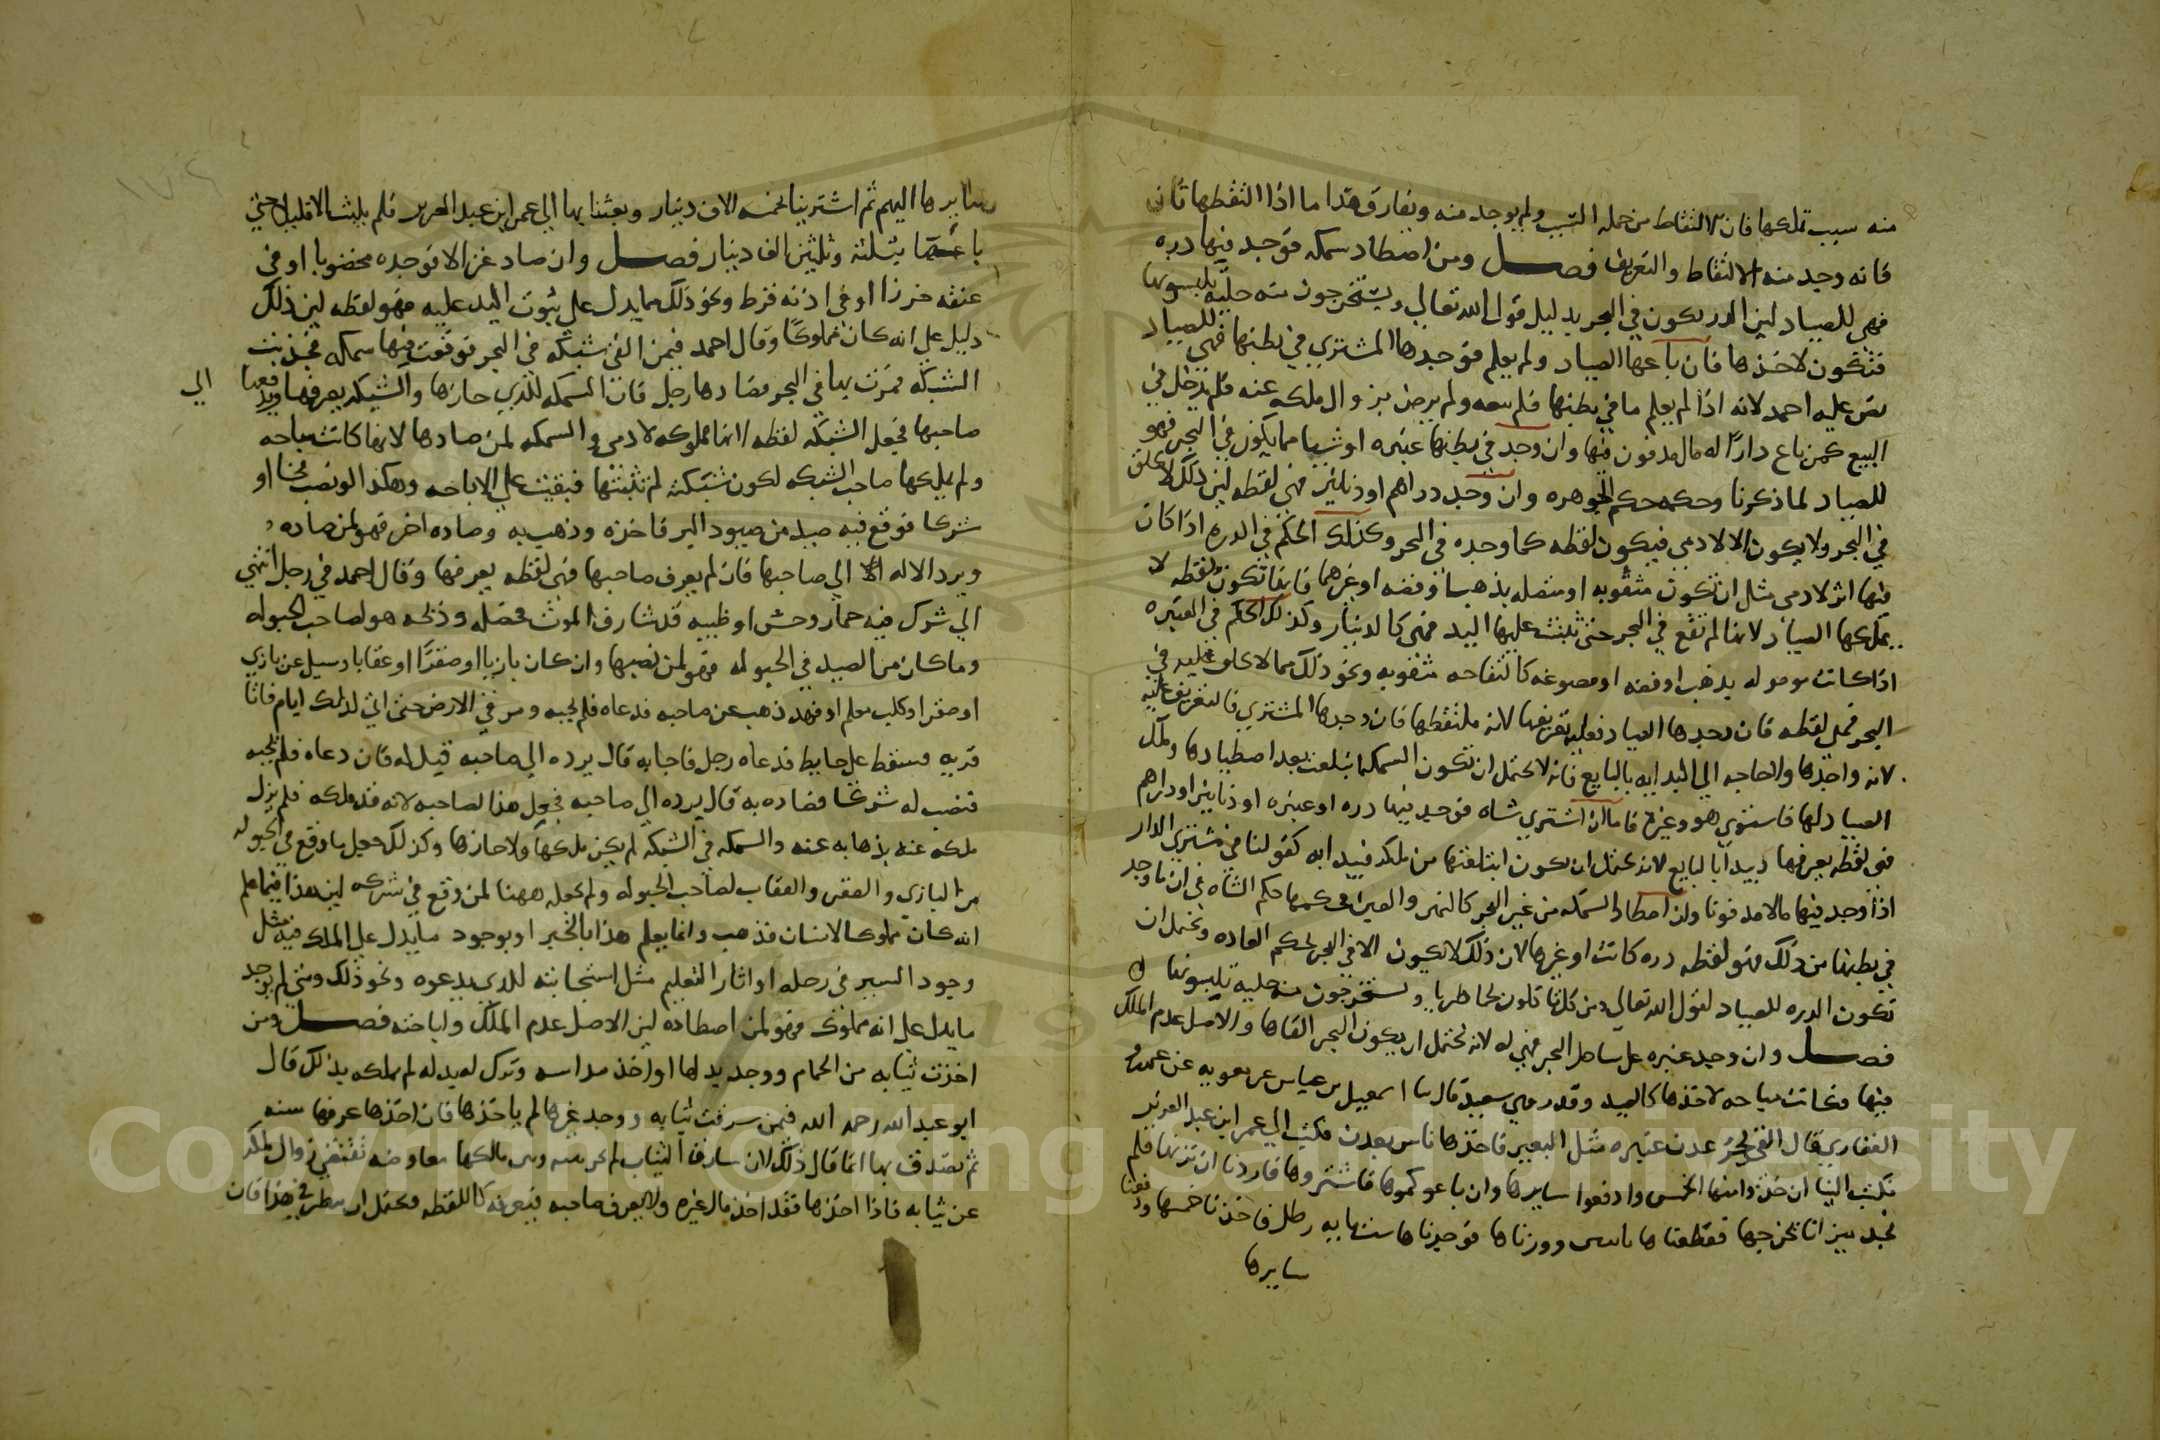 منه سبب تملكها فان الالتقاط من جمله التسبب ولم يوجد منه ويفارق هذا ما اذا التقطها ثان
فانه وجد منه الالتقاط والتعريف فصل ومن اصطاد سمكه فوجد فيها دره
فهي للصياد لين الدر يكون في البحر بدليل قول الله تعالي ويستخرجون منه حليه يلبسونها
فتكون لاخذها فان باعها الصياد ولم يعلم فوجدها المشتري في بطنها فهي للصياد
نص عليه احمد لانه اذا لم يعلم ما في بطنها فلم يبعه ولم يرض بزوال ملكه عنه فلم يدخل في
البيع كمن باع دارا له مال مدفون فيها وان وجد في بطنها عنبره او شيا مما يكون في البحر فهو
للصياد لما ذكرنا وحكمه حكم الجوهره وان وجد دراهم او دنانير فهي لقطه لين ذلك لا يخلق
في البحر ولا يكون الا لادمي فيكون لقطه كما وجده في البحر وكذلك الحكم في الدره اذا كان
فيها اثر لادمي مثل ان تكون مثقوبه او متصله بذهب او فضه او غيرهما فانها تكون لقطه لا
يملكها الصياد لانها لم تقع في البحر حتى تثبت عليها اليد فهي كالدينار وكذلك الحكم في العنبره
اذا كانت موصوله بذهب او فضه او مصوغه كالتفاحه مثقوبه ونحو ذلك مما لا يخلق عليه في
البحر فهي لقطه فان وجدها الصياد فعليه تعريفها لانه ملتقطها فان وجدها المشتري فالتعريف عليه
لانه واجدها ولا حاجه الي البدايه بالبايع فانه لا يحتمل ان تكون السمكه ابتلعت بعد اصطيادها وملك
الصياد لها فاستوي هو وغيره فاما ان اشتري شاه فوجد فيها دره او عنبره او دنانير او دراهم
فهي لقطه يعرفها ويبدا بالبايع لانه يحتمل ان يكون ابتلعتها من ملكه فيبدا به كقولنا في مشتري الدار
اذا وجد فيها مالا مدفونا وان اصطاد السمكه من غير البحر كالنهر والعين فحكمها حكم الشاه في ان ما وجد
في بطنها من ذلك فهو لقطه دره كانت او غيرها لان ذلك لا يكون الا في البحر بحكم العاده ويحتمل ان
تكون الدره للصياد لقول الله تعالي ومن كل تاكلون لحما طريا وتستخرجون منه حليه تلبسونها
فصل وان وجد عنبره علي ساحل البحر فهي له لانه يحتمل ان يكون البحر القاها والاصل عدم الملك
فيها فكانت مباحه لاخذها كالصيد وقد روي سعيد قال سا اسمعيل بن عياش عن معويه عن عمرو
الغفاري قال القي بحر عدن عنبره مثل البعير فاخذها ناس بعدن فكتب الي عمر ابن عبد العزيز
فكتب الينا ان خذوا منها الخمس وادفعوا سايرها وان باعوكموها فاشتروها فاردنا ان نزنها فلم
نجد ميزانا يخرجها فقطعناها باثنين ووزناها فوجدناها ستمايه رطل فاخذنا خمسها ودفعنا
سايرها
سايرها اليهم ثم اشتريناها بخمسه الاف دينار وبعثنا بها الي عمر ابن عبد العزيز فلم يلبث الا قليلا حتي
باعها بثلثه وثلثين الف دينار فصل وان صاد غزالا فوجده مخضوبا او في
عنقه خرزا او في اذنه قرط ونحو ذلك مما يدل علي ثبوت اليد عليه فهو لقطه لين ذلك
دليل علي انه كان مملوكا وقال احمد فيمن القي شبكه في البحر فوقعت فيها سمكه فجذبت
الشبكه فمرت بها في البحر فصادها رجل فان السمكه للذي حازها والشبكه يعرفها ويدفعها الي
صاحبها فجعل الشبكه لقطه لانها مملوكه لادمي والسمكه لمن صادها لانها كانت مباحه
ولم يملكها صاحب الشبكه لكون شبكته لم تثبتها فبقيت علي الاباحه وهكذا لو نصب فخا او
شركا فوقع فيه صيد من صيود البر فاخذه وذهب به وصاده اخر فهو لمن صاده
ويرد الاله الي صاحبها فان لم يعرف صاحبها فهي لقطه يعرفها وقال احمد في رجل انتهي
الي شرك فيه حمار وحش او ظبيه قد شارف الموت فخلصه وذبحه هو لصاحب الحبوله
وما كان من الصيد في الحبوله فهو لمن نصبها وان كان بازيا او صقرا او عقابا وسيل عن بازي
او صقر او كلب معلم او فهد ذهب عن صاحبه فدعاه فلم يجبه ومر في الارض حتي اتي لذلك ايام فاتا
قريه فسقط علي حايط فدعاه رجل فاجابه قال يرده الي صاحبه قيل له فان دعاه فلم يجبه
فنصب له شركا فصاده به قال يرده الي صاحبه فجعل هذا لصاحبه لانه قد ملكه فلم يزل
ملكه عنه بذهابه عنه والسمكه في الشبكه لم يكن ملكها ولا حازها وكذلك جعل ما وقع في الحبوله
من البازي والصقر والعقاب لصاحب الحبوله ولم يجعله ههنا لمن وقع في شركه لين هذا فيما علم
انه كان مملوكا لانسان فذهب وانما يعلم هذا بالخبر او بوجود ما يدل علي الملك فيه مثل
وجود السير في رجله او اثار التعليم مثل استجابته للذي يدعوه ونحو ذلك ومتي لم يوجد
ما يدل علي انه مملوك فهو لمن اصطاده لين الاصل عدم الملك واباحته فصل ومن
اخذت ثيابه من الحمام ووجد بدلها او اخذ مداسه وترك له بدله لم يملكه بذلك قال
ابو عبد الله رحمه الله فيمن سرقت ثيابه ووجد غيرها لم ياخذها فان اخذها عرفها سنه
ثم تصدق بها انما قال ذلك لان سارق الثياب لم يجر بينه وبين مالكها معاوضه تقتضي زوال ملكه
عن ثيابه فاذا اخذها فقد اخذ مال غيره ولا يعرف صاحبه فيعرفه كاللقطه ويحتمل ان ينظر في هذا فان